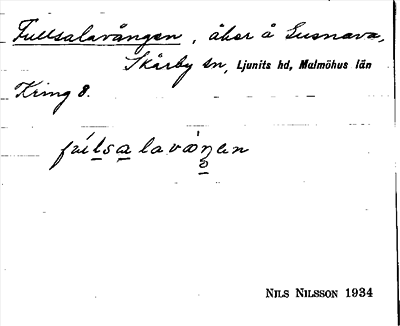 Fullsalavången, åker å Gusnava,
Skårby sn, Ljunits hd, Malmöhus län
Kring 8.
NILS NILSSON 1934